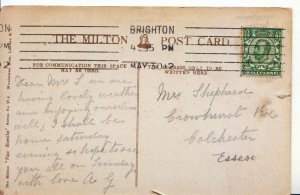 BRIGHTON
THE MILTON POST CARD
4 15 PM
MAY 12
FOR COMMUNICATION THIS SPACE MAY BE USED
WRITTEN HERE
Dear Mrs S we are
having lovely weather
and enjoying ourselves
well, I shall be
home saturday
evening so hope to see
you all on Sunday
with love A G
Mrs Shepherd
Crowhurst Rd
Colchester
Essex